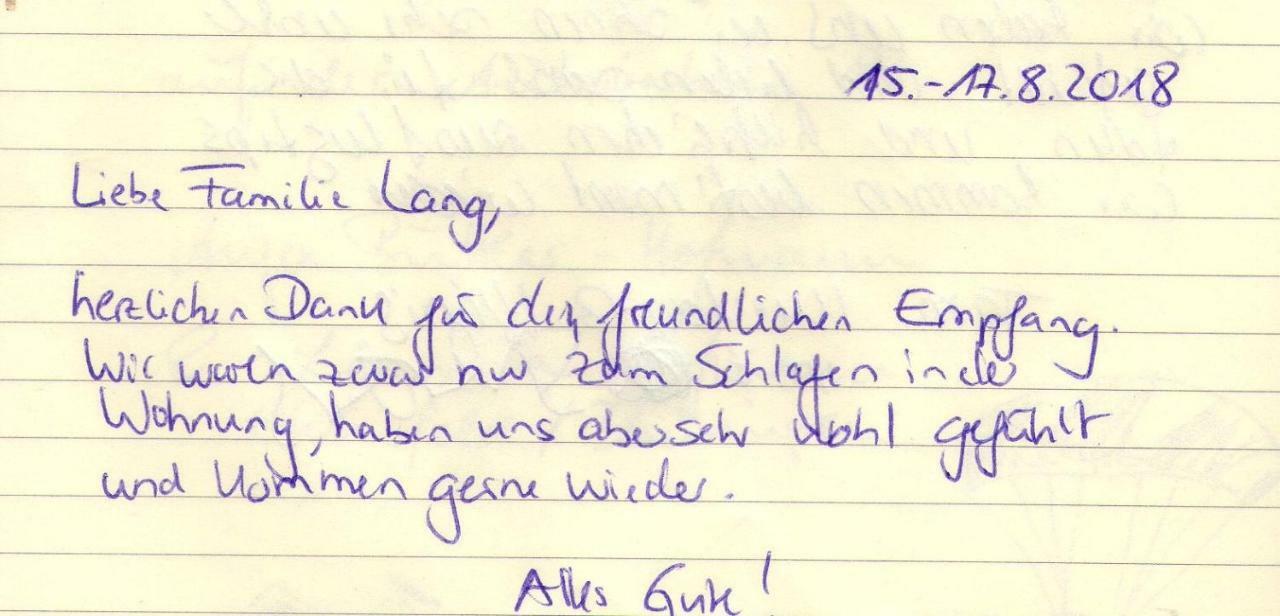 15.-17.8.2018
Liebe Familie Lang,
herzlichen Dank für den freundlichen Empfang.
Wir waren zwar nur zum Schlafen in der
Wohnung, haben uns aber sehr wohl gefühlt
und kommen gerne wieder.
Alles Gute!